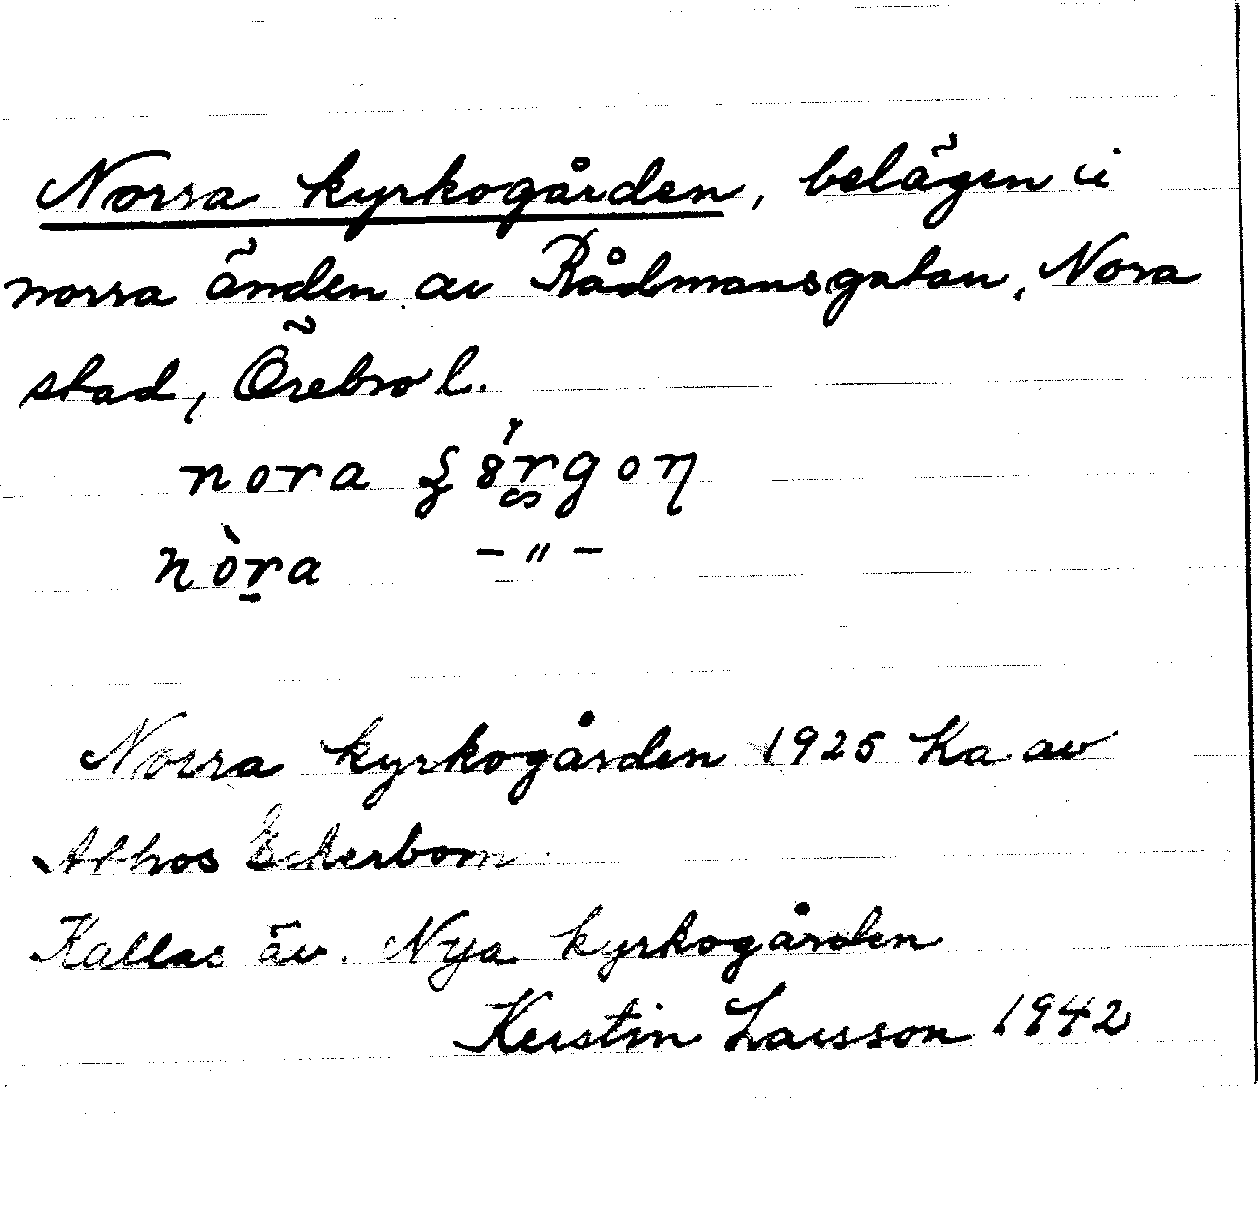 Norra kyrkogården, belägen i
norra änden av Rådmansgatan, Nora
stad, Örebro l.
nora
nòra -"-
Norra kyrkogården 1925 Ka av
Athos Ekerbom
Kallas äv. Nya kyrkogården
Kerstin Larsson 1942